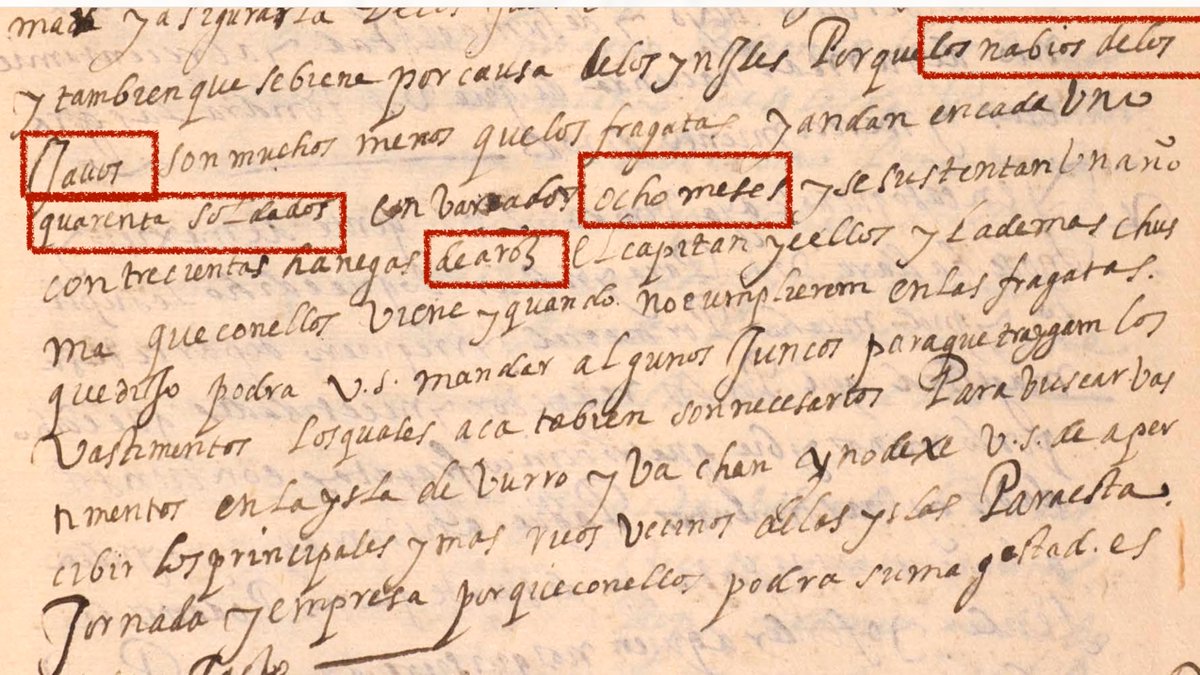 y asigurarla de los
y tambien que se biene por causa de los ynglesses Porque los nabios de los
Jauos son muchos menos que los fragatas y andan en cada Vno
quarenta soldados con varcados ocho meses y se sustentan Vn año
con trecientas hanegas de aroz el capitan y ellos y la demas chus
ma que con ellos viene y quando no cumplierem en las fragatas.
que diso podra V.S. mandar algunos Juncos para que traygam los
Vastimentos los quales aca tabien son necesarios Para buscar vas
timentos en la ysla de burro y Va chan y no dexe V.S. de aper
cibir los principales y mas ricos vecinos allas yslas Para esta
Jornada y empresa porque con ellos podra su magestad. es